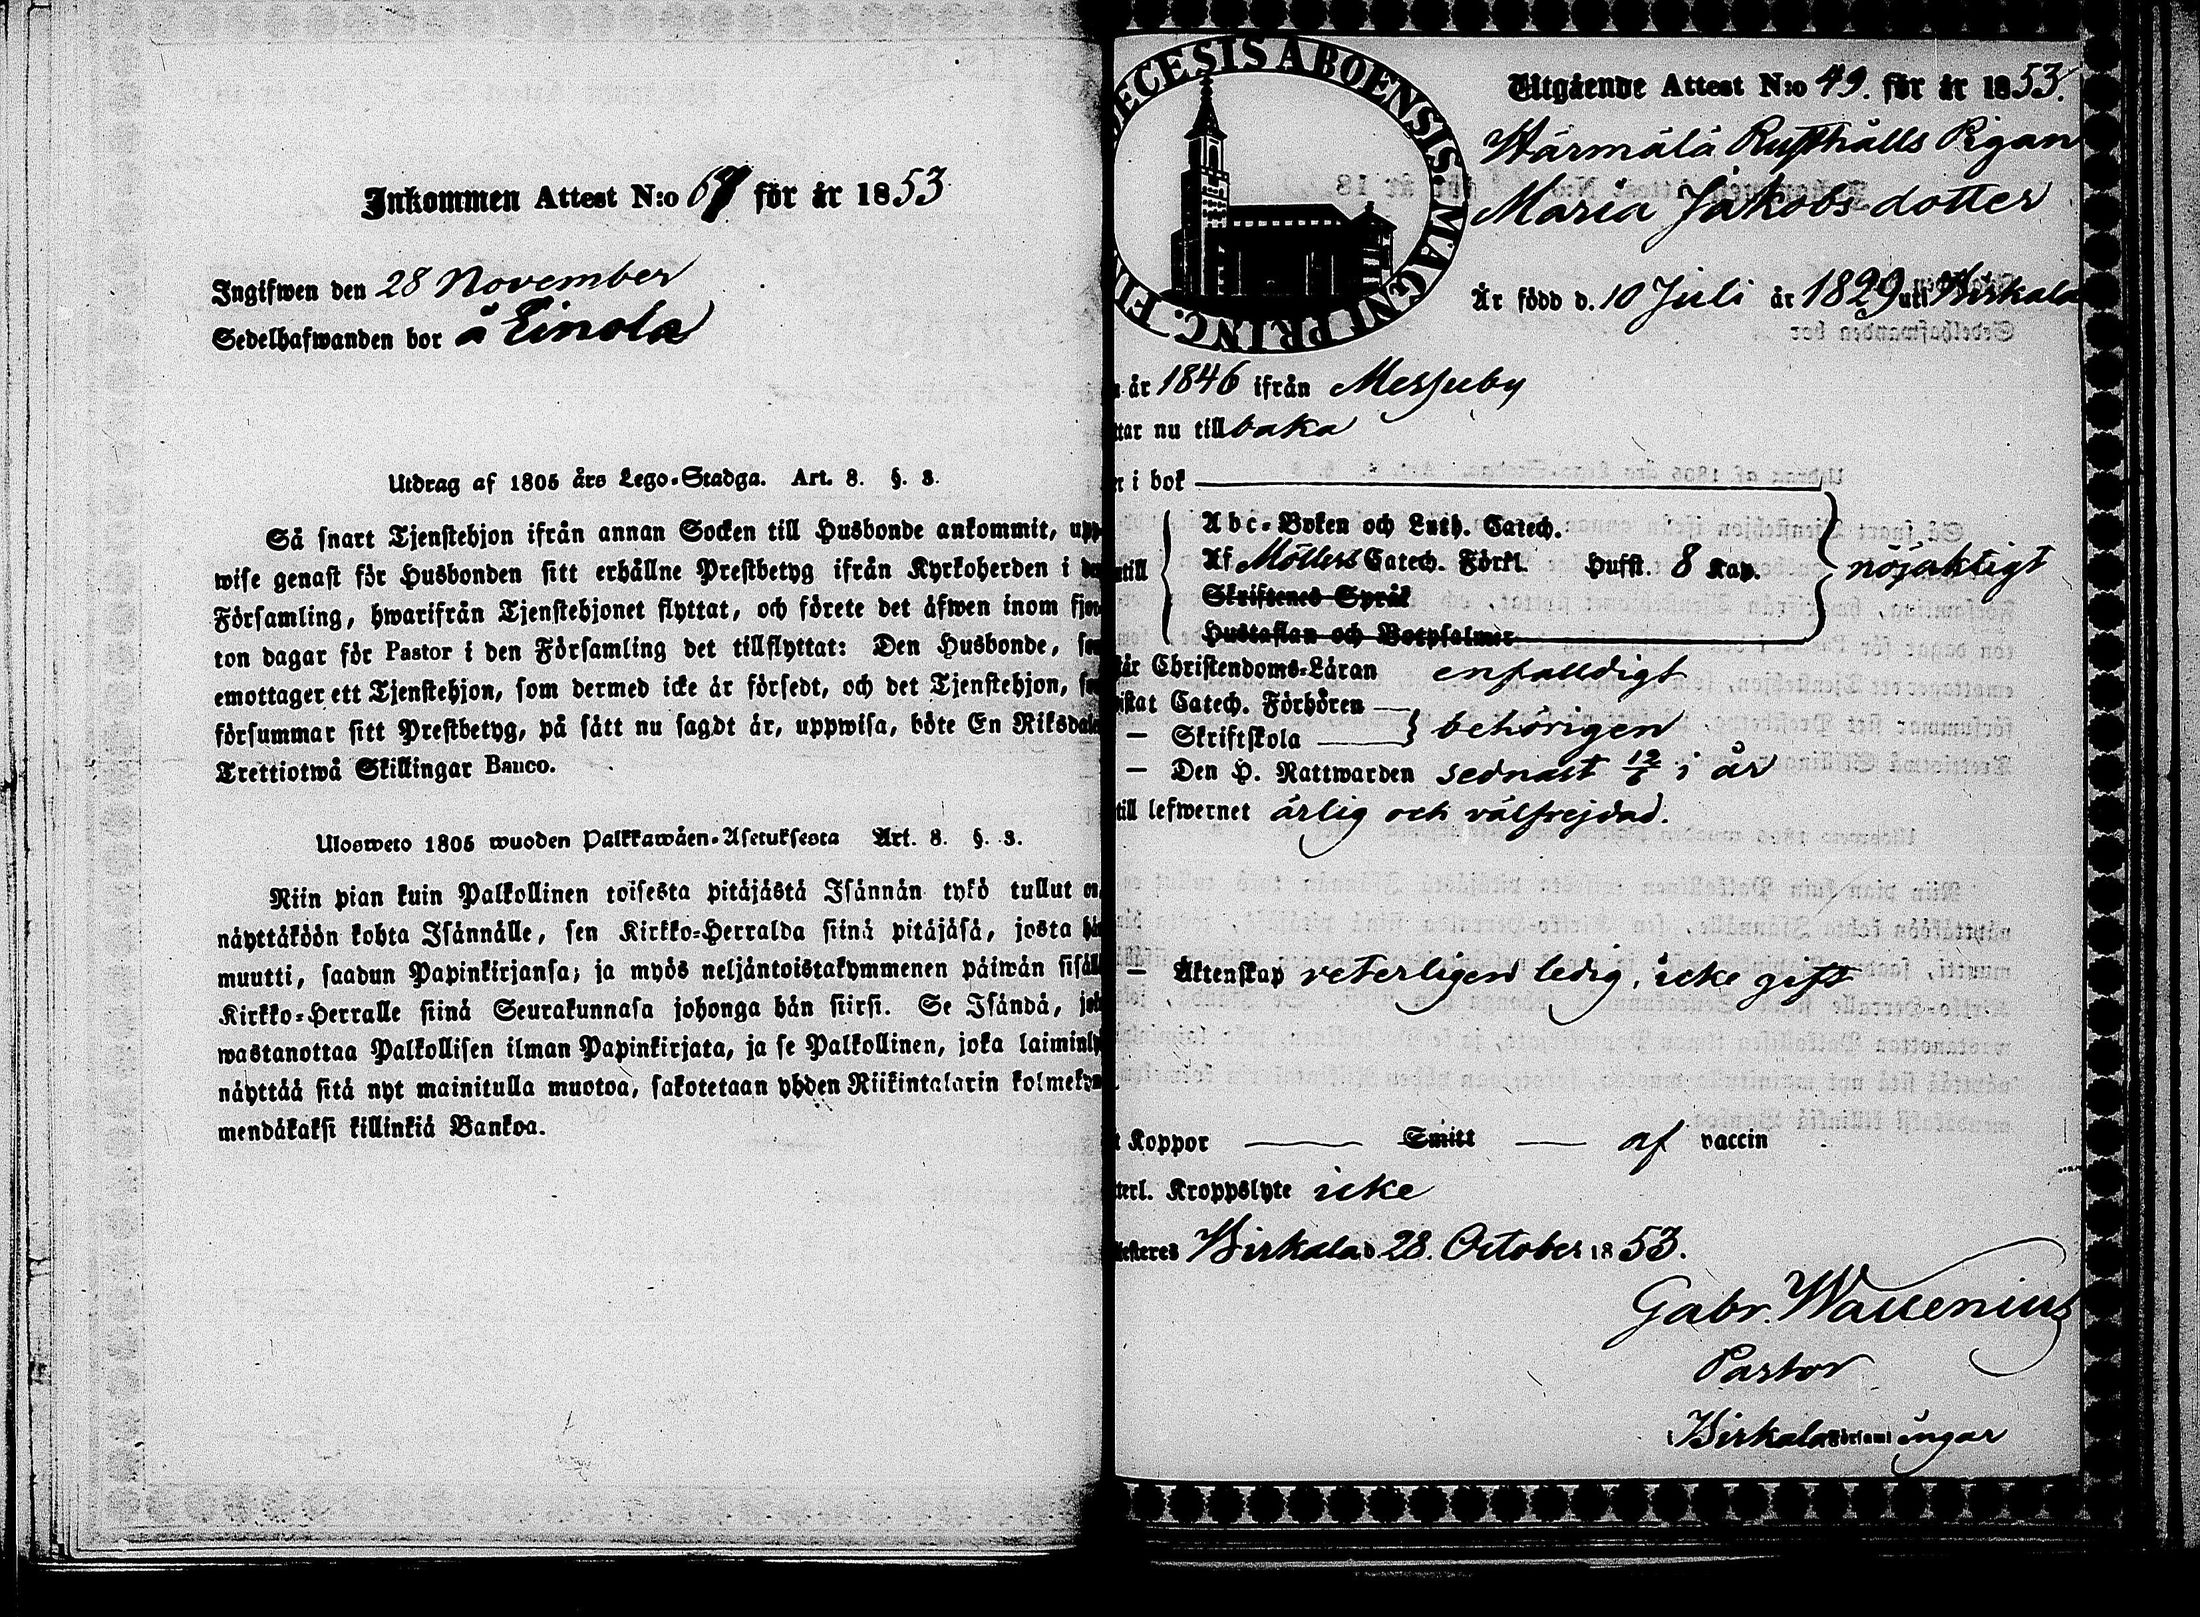 Inkommen Attest N:o 67 för år 1853
Ingifwen den 28 November
Sedelhafwanden bor å Einola
Utdrag af 1805 års Lego-Stadga. Art. 8. §. 3.
Så snart Tjenstehjon ifrån annan Socken till Husbonde ankommit, upp-
wise genast för Husbonden sitt erhållne Prestbetyg ifrån Kyrkoherden i den
Församling, hwarifrån Tjenstehjonet flyttat, och förete det äfwen inom fjor-
ton dagar för Pastor i den Församling det tillflyttat: Den Husbonde, som
emottager ett Tjenstehjon, som dermed icke är försedt, och det Tjenstehjon, som
försummar sitt Prestbetyg, på sätt nu sagdt är, uppwisa, böte En Riksdaler
Trettiotwå Skillingar Banco.
Ulosweto 1805 wuoden Palkkawäen-Asetuksesta Art. 8. §. 3.
Niin pian kuin Palkollinen toisesta pitäjästä Isännän tykö tullut on,
näyttäköön kohta Isännälle, sen Kirkko-Herralda siinä pitäjäsä, josta hän
muutti, saadun Papinkirjansa; ja myös neljäntoistakymmenen päiwän sisällä
Kirkko-Herralle siinä Seurakunnasa johonga hän siirsi. Se Isändä, joka
wastanottaa Palkollisen ilman Papinkirjata, ja se Palkollinen, joka laiminlyö
näyttää sitä nyt mainitulla muotoa, sakotetaan yhden Riikintalarin kolmekym-
mendäkaksi killinkiä Bankoa.
DECESIS ABOENSIS. MAGNI PRINC. FI
Utgående Attest N:o 49. för år 1853.
Wärmälä Rusthålls Pigan
Maria Jakobs dotter
Är född d. 10 Juli år 1829 uti Birkala
år 1846 ifrån Messuby
ttar nu tillbaka
r i bok
ntill
Abc-Boken och Luth. Catech.
Af Möllers Catech. Förkl. Hufst. 8 Kap.
Skriftenes Språk
Hustaflan och Botpsalmer
nöjaktigt
tår Christendoms-Läran enfalldigt
istat Catech. Förhören
— Skriftskola } behörigen
— Den H. Nattwarden sednast 12/6 i år
till lefwernet ärlig och välfrejdad.
— Äktenskap veterligen ledig, icke gift
t Koppor — Smitt — af vaccin
terl. Kroppslyte icke
testeres Birkala d. 28. October 1853.
Gabr. Wallenius
Pastor
i Birkala Församlingar